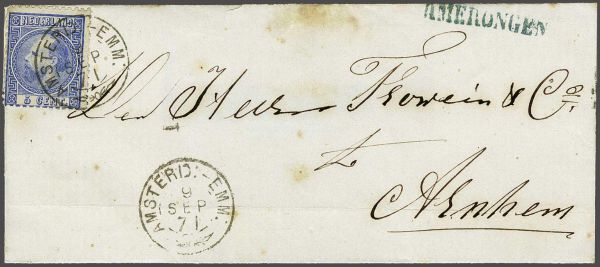 AMERONGEN
NEDERLAND
5 CENT
AMSTERD:-EMM.
SEP
71
Den Heer Trowein & Co/.
te
Arnhem
AMSTERD:-EMM.
9
SEP
71